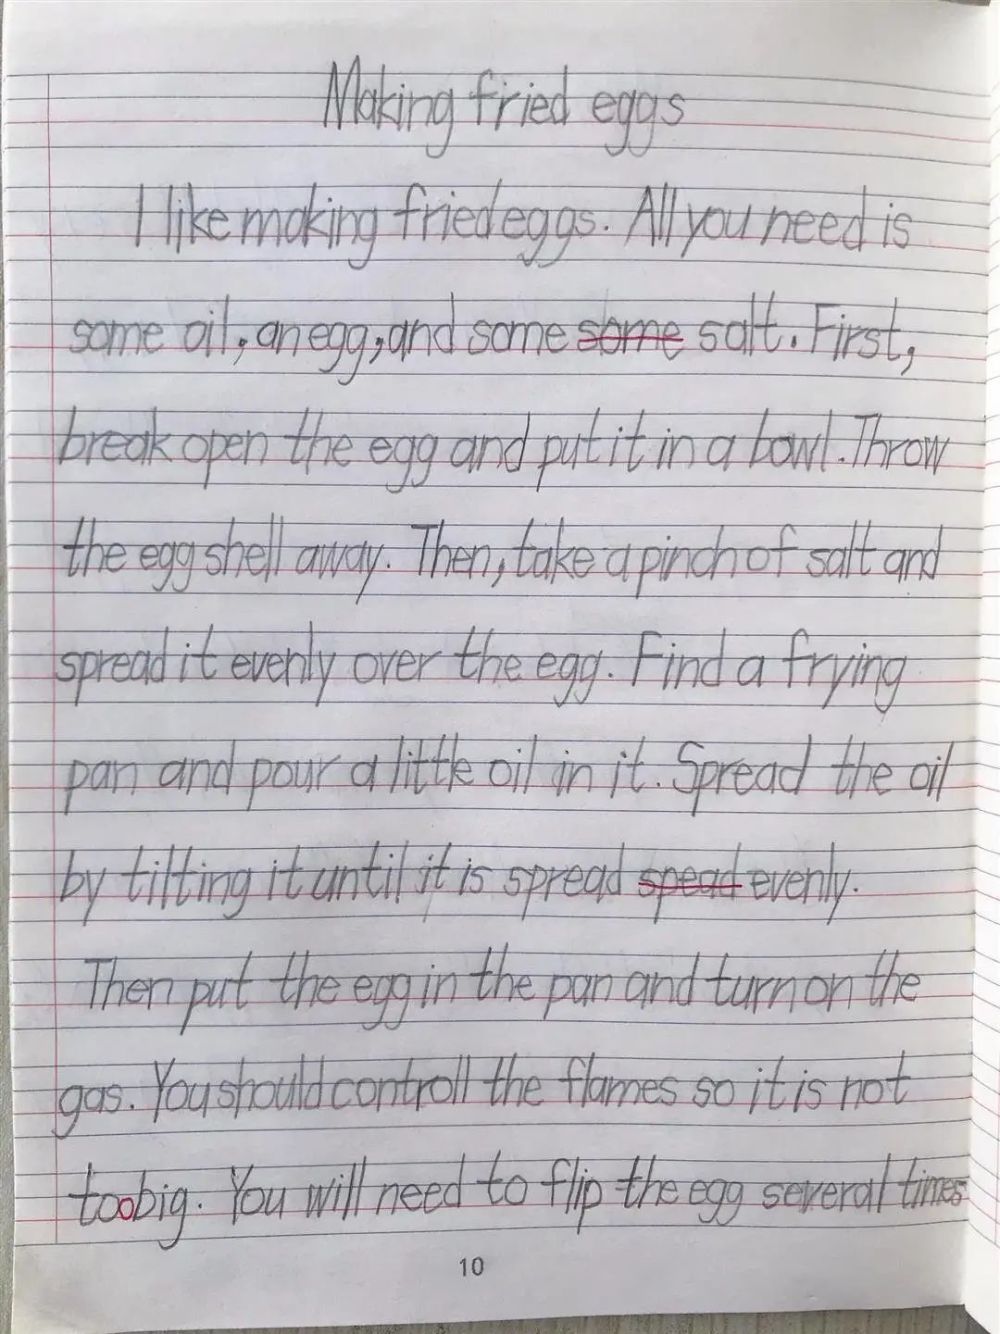 Making fried eggs
I like making fried eggs. All you need is
some oil, an egg, and some some salt. First,
break open the egg and put it in a bowl. Throw
the egg shell away. Then, take a pinch of salt and
spread it evenly over the egg. Find a frying
pan and pour a little oil in it. Spread the oil
by tilting it until it is spread spead evenly.
Then put the egg in the pan and turn on the
gas. You should controll the flames so it is not
too big. You will need to flip the egg several times
10